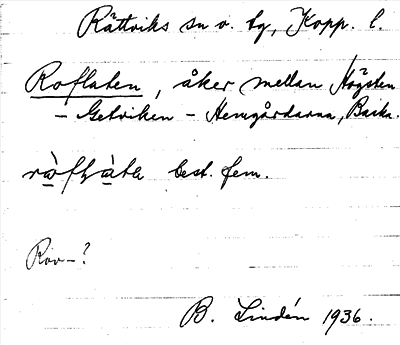 Rättviks sn o. tg, Kopp. l.
Roflaten, åker mellan Högsten
– Getviken – Hemgårdarna, Backa.
best. fem.
Rov–?
B. Lindén 1936.